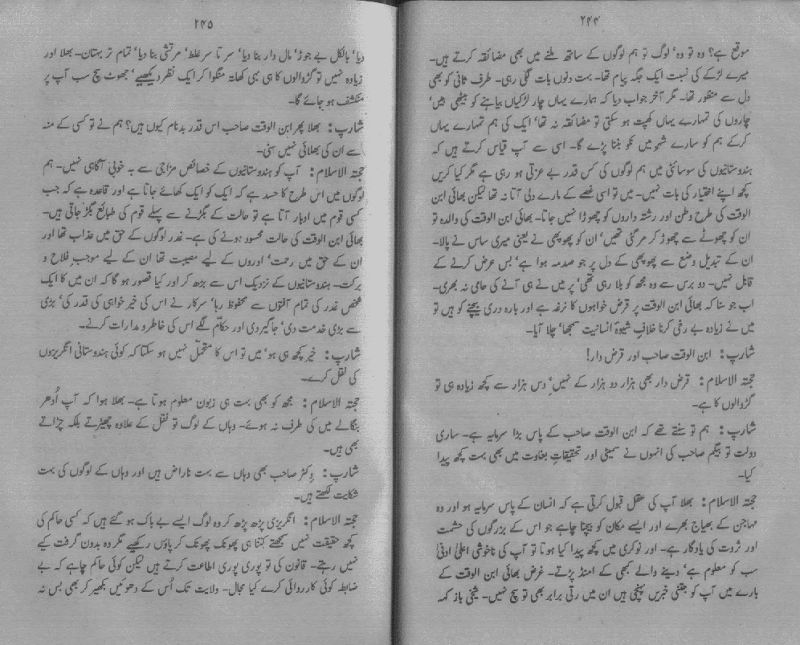 ۲۴۴
موقع ہے؟ وہ تو وہ' لوگ تو ہم لوگوں کے ساتھ ملنے میں بھی مضائقہ کرتے ہیں۔
میرے لڑکے کی نسبت ایک جگہ پیام تھا۔ بہت دنوں بات لگی رہی۔ طرف ثانی کو بھی
دل سے منظور تھا۔ مگر آخر جواب دیا کہ ہمارے یہاں چار لڑکیاں بیاہنے کو بیٹھی ہیں'
چاروں کی تمہارے یہاں کھپت ہو سکتی تو مضائقہ نہ تھا' ایک کی ہم تمہارے یہاں
کرکے ہم کو سارے شہر میں نکو بننا پڑے گا۔ اسی سے آپ قیاس کرتے ہیں کہ
ہندوستانیوں کی سوسائٹی میں ہم لوگوں کی کس قدر بے عزتی ہو رہی ہے مگر کیا کریں
کچھ اپنے اختیار کی بات نہیں۔ میں تو اسی غصے کے مارے دلی آتا نہ تھا لیکن بھائی ابن
الوقت کی طرح وطن اور رشتہ داروں کو چھوڑا نہیں جاتا۔ بھائی ابن الوقت کی والدہ تو
ان کو چھوٹے سے چھوڑ کر مر گئی تھیں' ان کو پھوپھی نے یعنی میری ساس نے پالا۔
ان کے تبدیل وضع سے پھوپھی کے دل پر جو صدمہ ہوا ہے' بس عرض کرنے کے
قابل نہیں۔ دو برس سے وہ مجھ کو بلا رہی تھی' پر میں نے ہی آنے کی حامی نہ بھری۔
اب جو سنا کہ بھائی ابن الوقت پر قرض خواہوں کا نرغہ ہے اور بارہ دری بیچنے کو ہیں تو
میں نے زیادہ بے رخی کرنا خلاف شیوۂ انسانیت سمجھا' چلا آیا۔
شارپ: ابن الوقت صاحب اور قرض دار!
حجتہ الاسلام: قرض دار بھی ہزار دو ہزار کے نہیں' دس ہزار سے کچھ زیادہ ہی تو
گڑوالوں کا ہے۔
شارپ: ہم تو سنتے تھے کہ ابن الوقت صاحب کے پاس بڑا سرمایہ ہے۔ ساری
دولت تو بیگم صاحب کی انہوں نے سمیٹی اور تحقیقات بغاوت میں بھی بہت کچھ پیدا
کیا۔
حجتہ الاسلام: بھلا آپ کی عقل قبول کرتی ہے کہ انسان کے پاس سرمایہ ہو اور وہ
مہاجن کے بھیاج بھرے اور ایسے مکان کو بیچنا چاہے جو اس کے بزرگوں کی حشمت
اور ثروت کی یادگار ہے۔ اور نوکری میں کچھ پیدا کیا ہوتا تو آپ کی ناخوشی اعلیٰ ادنیٰ
سب کو معلوم ہے' دینے والے کبھی کے امنڈ پڑتے۔ غرض بھائی ابن الوقت کے
بارے میں آپ کو جتنی خبریں پہنچی ہیں ان میں رتی برابر بھی تو سچ نہیں۔ شیخی باز کہہ
۲۴۵
دیا' بالکل بے جوڑ' مال دار بنا دیا' سر تا سر غلط' مرتشی بنا دیا' تمام تر بہتان۔ بھلا اور
زیادہ نہیں تو گڑوالوں کا ہی بہی کھاتہ منگوا کر ایک نظر دیکھیے' جھوٹ سچ سب آپ پر
منکشف ہو جائے گا۔
شارپ: بھلا پھر ابن الوقت صاحب اس قدر بدنام کیوں ہیں؟ ہم نے تو کسی کے منہ
سے ان کی بھلائی نہیں سنی۔
حجتہ الاسلام: آپ کو ہندوستانیوں کے خصائص مزاجی سے بہ خوبی آگاہی نہیں۔ ہم
لوگوں میں اس طرح کا حسد ہے کہ ایک کو ایک کھائے جاتا ہے اور قاعدہ ہے کہ جب
کسی قوم میں ادبار آتا ہے تو حالت کے بگڑنے سے پہلے قوم کی طبائع بگڑ جاتی ہیں۔
بھائی ابن الوقت کی حالت محسود ہونے کی ہے۔ غدر لوگوں کے حق میں عذاب تھا اور
ان کے حق میں رحمت' اوروں کے لیے مصیبت تھا ان کے لیے موجب فلاح و
برکت۔ ہندوستانیوں کے نزدیک اس سے بڑھ کر اور کیا قصور ہو گا کہ ان میں کا ایک
شخص غدر کی تمام آفتوں سے محفوظ رہا' سرکار نے اس کی خیر خواہی کی قدر کی' بڑی
سے بڑی خدمت دی' جاگیر دی اور حکام لگے اس کی خاطر و مدارات کرنے۔
شارپ: خیر کچھ ہی ہو' میں تو اس کا متحمل نہیں ہو سکتا کہ کوئی ہندوستانی انگریزوں
کی نقل کرے۔
حجتہ الاسلام: مجھ کو بھی بہت ہی زبون معلوم ہوتا ہے۔ بھلا ہوا کہ آپ اُدھر
بنگالے میں کی طرف نہ ہوئے۔ وہاں کے لوگ تو نقل کے علاوہ چھیڑتے بلکہ چڑاتے
بھی ہیں۔
شارپ: وکٹر صاحب بھی وہاں سے بہت ناراض ہیں اور وہاں کے لوگوں کی بہت
شکایت لکھتے ہیں۔
حجتہ الاسلام: انگریزی پڑھ پڑھ کر وہ لوگ ایسے بے باک ہو گئے ہیں کہ کسی حاکم کی
کچھ حقیقت نہیں سمجھتے کتنا ہی پھونک پھونک کر پاؤں رکھیے مگر وہ بدون گرفت کیے
نہیں رہتے۔ قانون کی تو پوری پوری اطاعت کرتے ہیں لیکن کوئی حاکم چاہے کہ بے
ضابطہ کوئی کارروائی کرے کیا مجال۔ ولایت تک اُس کے دھوئیں بکھیر کر بھی بس نہ